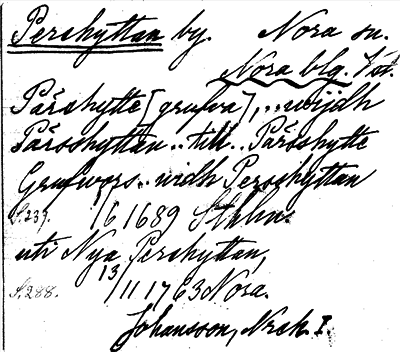 Pershyttan by. Nora sn.
Nora blg. Vst.
Pärshytte [grufva], .. wijdh
Pärsshyttan .. till .. Pärshytte
Grufwors .. widh Persshyttan
S. 239. 1/6 1689 Sthlm.
uti Nya Pershyttan,
S. 288. 13/11 1763 Nora.
Johansson, Norask. I.